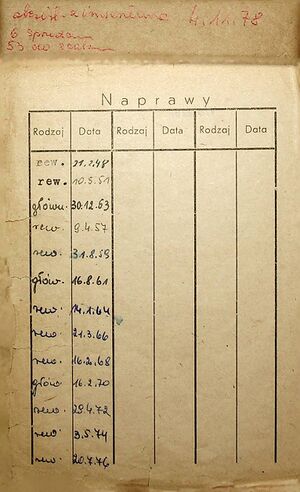 4.11.78
6
53
Naprawy
Rodzaj Data Rodzaj Data Rodzaj Data
rew. 21.2.48
rew. 10.5.51
główn. 30.12.53
rew. 9.4.57
rew. 31.8.59
główn. 16.8.61
rew. 14.1.64
rew. 21.3.66
rew. 16.2.68
główn. 16.2.70
rew. 29.4.72
rew. 3.5.74
rew. 20.7.76